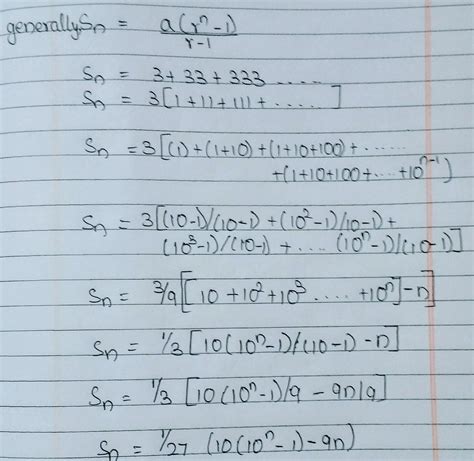 generally Sn = a(rⁿ-1)/r-1
Sn = 3+33+333 .....
Sn = 3[1+11+111+ ......]
Sn = 3[(1)+(1+10)+(1+10+100)+ ......
+(1+10+100+...+10ⁿ⁻¹)
Sn = 3[(10-1)/(10-1)+(10²-1)/10-1)+
(10³-1)/(10-1) + ... (10ⁿ-1)/(10-1)]
Sn = 3/9[[10+10²+10³ .... +10ⁿ]-n]
Sn = 1/3 [10(10ⁿ-1)/(10-1) -n]
Sn = 1/3 [10(10ⁿ-1)/9 - 9n/9]
Sn = 1/27 (10(10ⁿ-1)-9n)